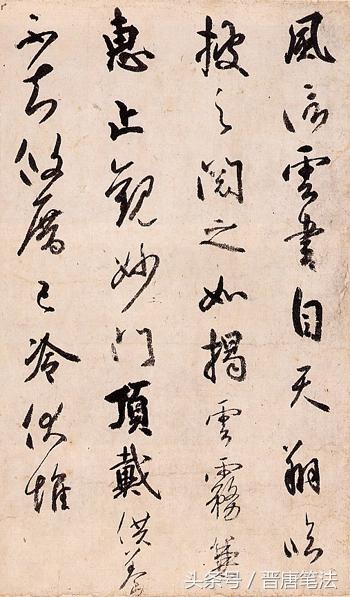 風信雲書自天翔臨
披之閱之如揭雲霧兼
惠止觀妙門頂戴供養
不知攸厝已冷伏惟
头条号/晋唐笔法